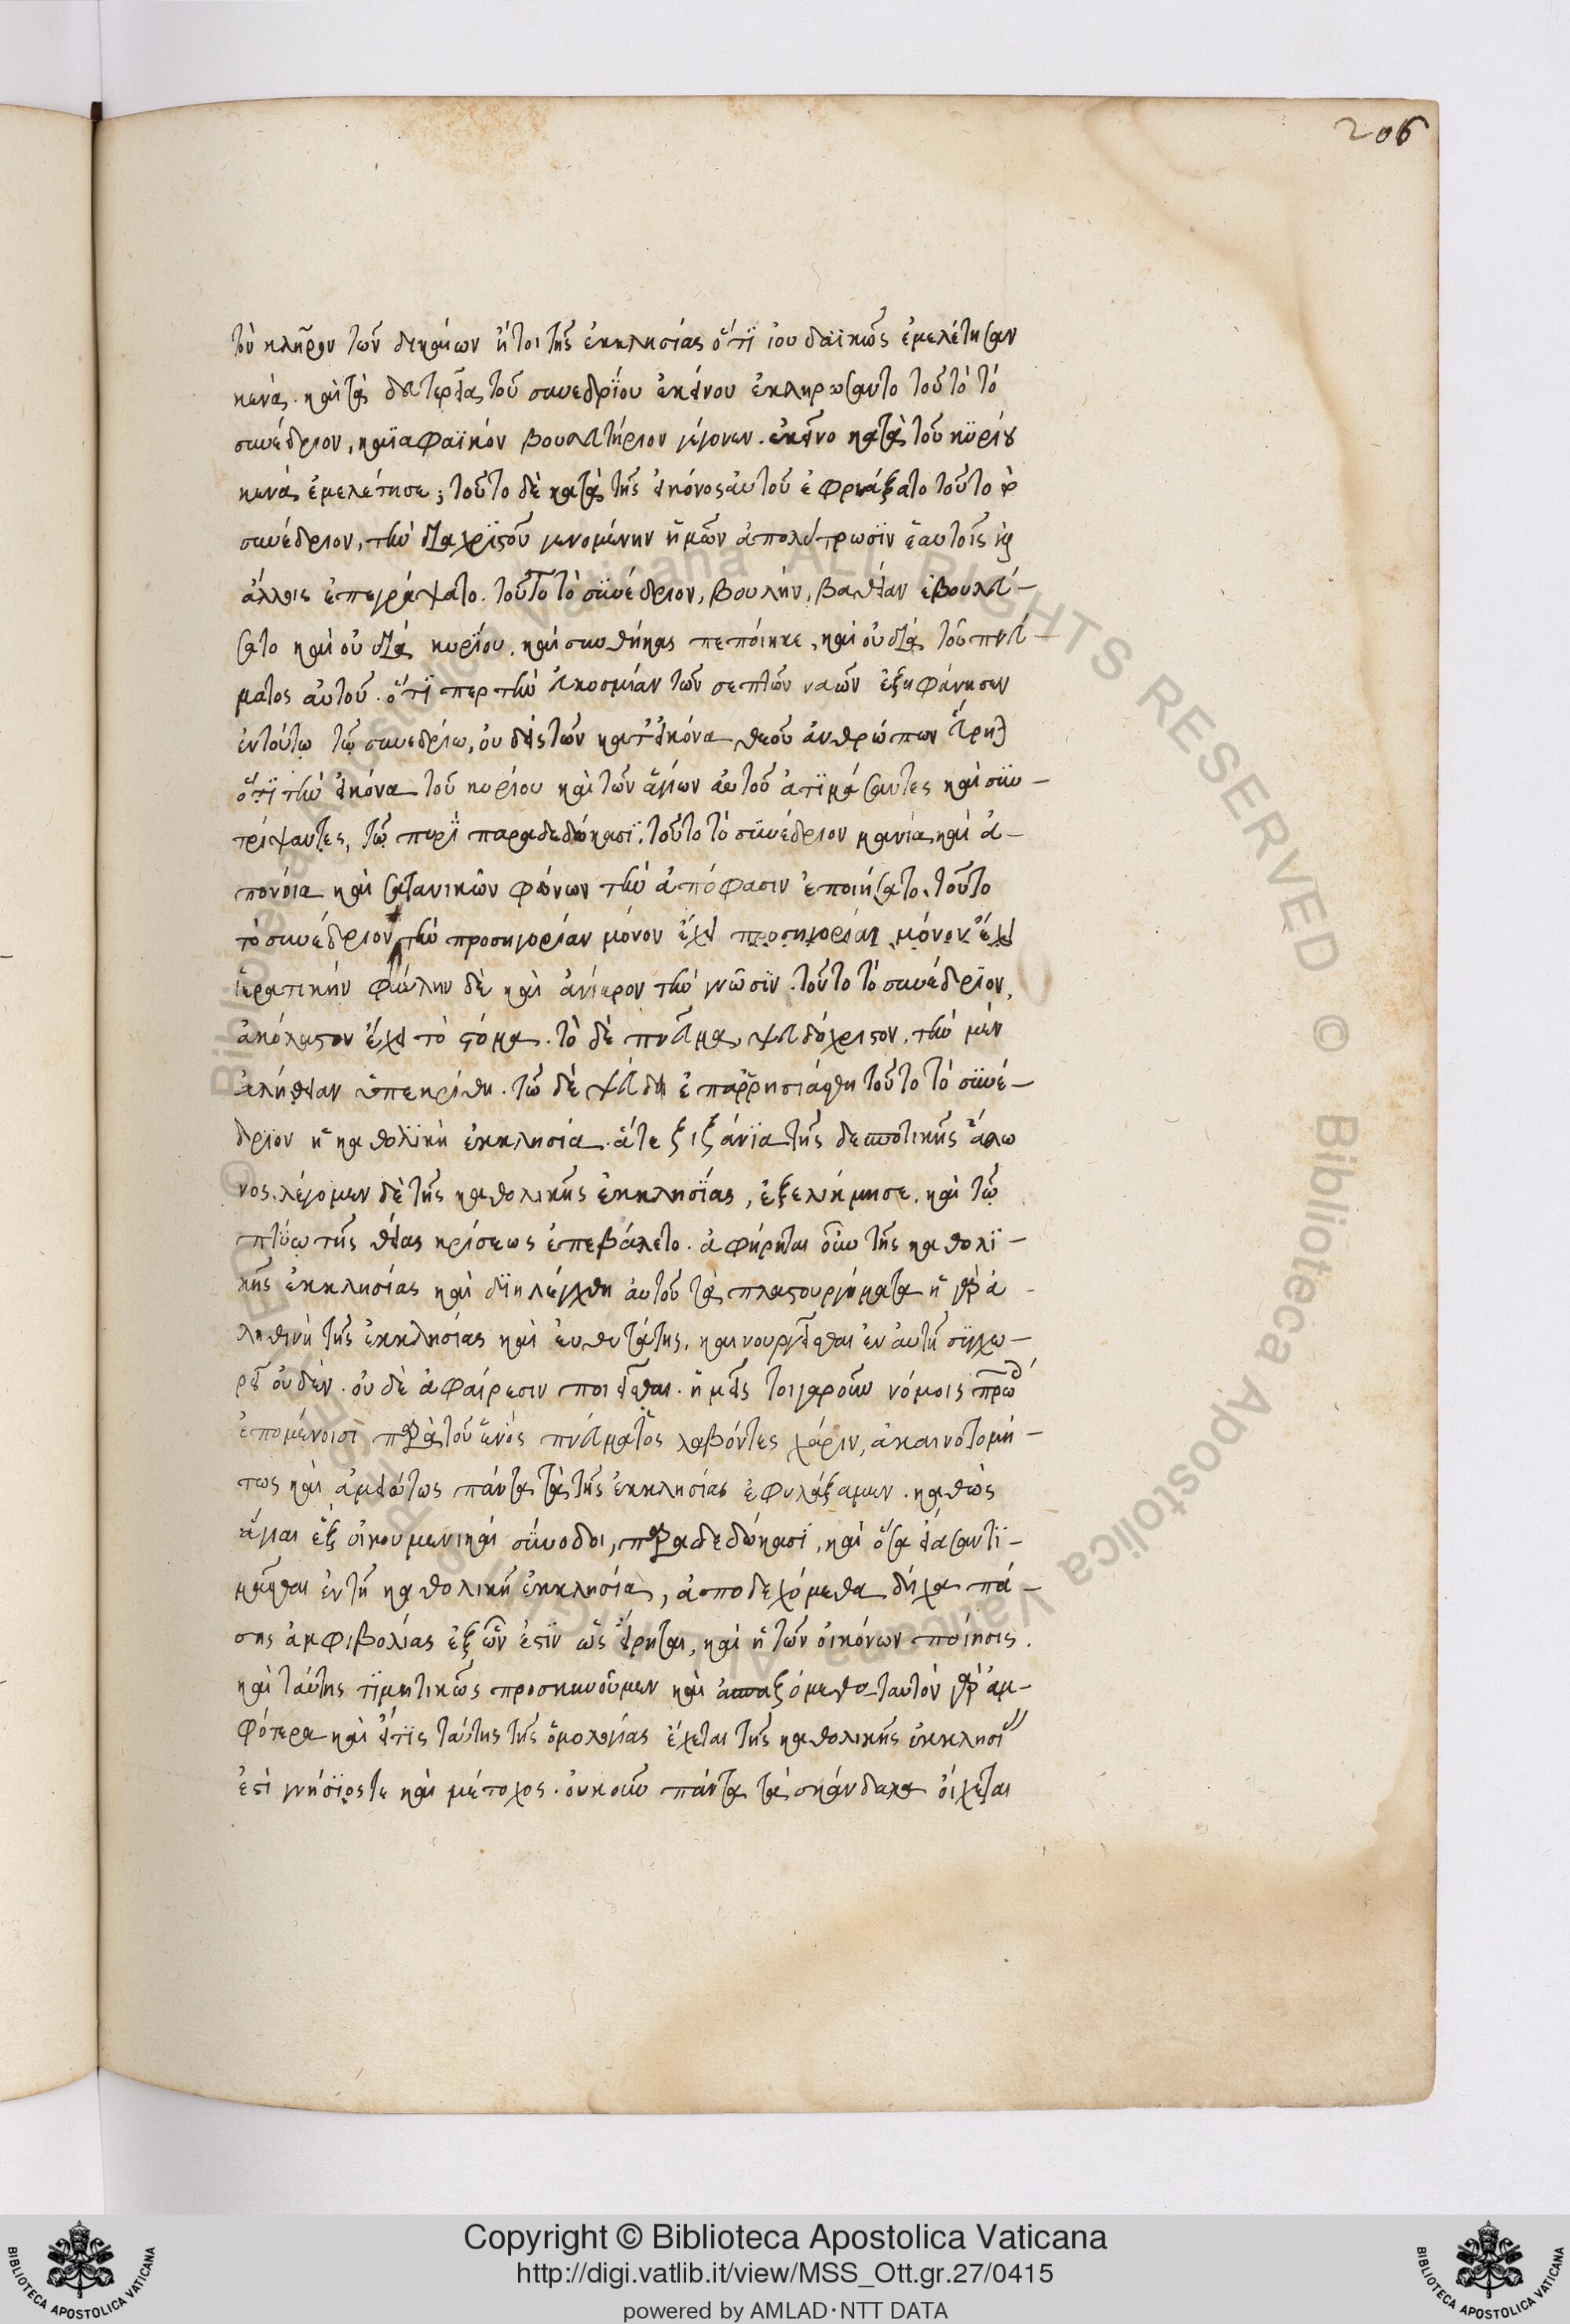 206
τὸν κλῆρον τῶν δικαίων ἤτοι τῆς ἐκκλησίας ὅτι ἰουδαϊκῶς ἐμελέτησαν
κενά. καὶ τὰ δευτερεῖα τοῦ συνεδρίου ἐκείνου ἐκληρώσαντο τοῦτο τὸ
συνέδριον, καϊαφαϊκόν βουλευτήριον γέγονεν. ἐκεῖνο κατὰ τοῦ κυρίου
κενὰ ἐμελέτησε; τοῦτο δὲ κατὰ τῆς εἰκόνος αὐτοῦ ἐφρυάξατο τοῦτο τὸ
συνέδριον, τὴν διὰ χριστοῦ γενομένην ἡμῶν ἀπολύτρωσιν ἑαυτοῖς καὶ
ἄλλοις ἐπεγράψατο. τοῦτο τὸ συνέδριον, βουλήν, βαθεῖαν ἐβουλεύ-
σατο καὶ οὐ διὰ κυρίου. καὶ συνθήκας πεποίηκε, καὶ οὐ διὰ τοῦ πνεύ-
ματος αὐτοῦ. ὅτι περ τὴν εὐκοσμίαν τῶν σεπτῶν ναῶν ἐξηφάνησεν
ἐν τούτω τῶ συνεδρίω, οὐδεὶς τῶν κατ' εἰκόνα θεοῦ ἀνθρώπων εὕρηται
ὅτι τὴν εἰκόνα τοῦ κυρίου καὶ τῶν ἁγίων αὐτοῦ ἀτιμάσαντες καὶ συν-
τρίψαντες, τῶ πυρὶ παραδεδώκασι. τοῦτο τὸ συνέδριον μανία καὶ ἀ-
πονόια καὶ σατανικῶν φόνων τὴν ἀπόφασιν ἐποιήσατο. τοῦτο
τὸ συνέδριον τὴν προσηγορίαν μόνον ἔχει προσηγορίαν μόνον ἔχει
ἱερατικήν φαύλην δὲ καὶ ἀνίερον τὴν γνῶσιν. τοῦτο τὸ συνέδριον,
ἀκόλαστον ἔχει τὸ στόμα. τὸ δὲ πνεῦμα, ψευδόχριστον. τὴν μὲν
ἀλήθειαν ὑπεκρίθη. τῶ δὲ ψεύδει ἐπαρρησιάσθη τοῦτο τὸ συνέ-
δριον ἡ καθολικὴ ἐκκλησία. ἅτε ζιζάνια τῆς δεσποτικῆς ἅλω
νος. λέγομεν δὲ τῆς καθολικῆς ἐκκλησίας, ἐξελίκμησε. καὶ τῶ
πτύω τῆς θείας κρίσεως ἐπεβάλετο. ἀφήρηται οὖν τῆς καθολι-
κῆς ἐκκλησίας καὶ διηλέγχθη αὐτοῦ τὰ πλαστουργήματα ἡ γὰρ ἀ-
ληθινὴ τῆς ἐκκλησίας καὶ εὐθυτάτης, καινουργεῖσθαι ἐν αὐτῆ συγχω-
ρεῖ οὐδέν. οὐδὲ ἀφαίρεσιν ποιεῖσθαι. ἡμεῖς τοιγαροῦν νόμοις
ἑπομένοισι παρὰ τοῦ ἑνός πνεύματος λαβόντες χάριν, ἀκαινοτομή-
τως καὶ ἀμειώτως πάντα τὰ τῆς ἐκκλησίας ἐφυλάξαμεν. καθὼς
ἅγιαι ἓξ οἰκουμενικαὶ σύνοδοι, παραδεδώκασι, καὶ ὅσα εἴασαν τι-
μᾶσθαι ἐν τῆ καθολικῆ ἐκκλησία, ἀποδεχόμεθα δίχα πά-
σης ἀμφιβολίας ἐξ ὧν ἐστὶν ὡς εἴρηται, καὶ ἡ τῶν εἰκόνων ποίησις.
καὶ ταύτης τιμητικῶς προσκυνοῦμεν καὶ ἀσπαζόμεθα ταυτὸν γὰρ ἀμ-
φότερα καὶ εἴτις ταύτης τῆς ὁμολογίας ἔχεται τῆς καθολικῆς ἐκκλησίας
ἐστὶ γνήσιός τε καὶ μέτοχος. οὐκοῦν πάντα τὰ σκάνδαλα οἴχεται
Copyright © Biblioteca Apostolica Vaticana
http://digi.vatlib.it/view/MSS_Ott.gr.27/0415
powered by AMLAD·NTT DATA